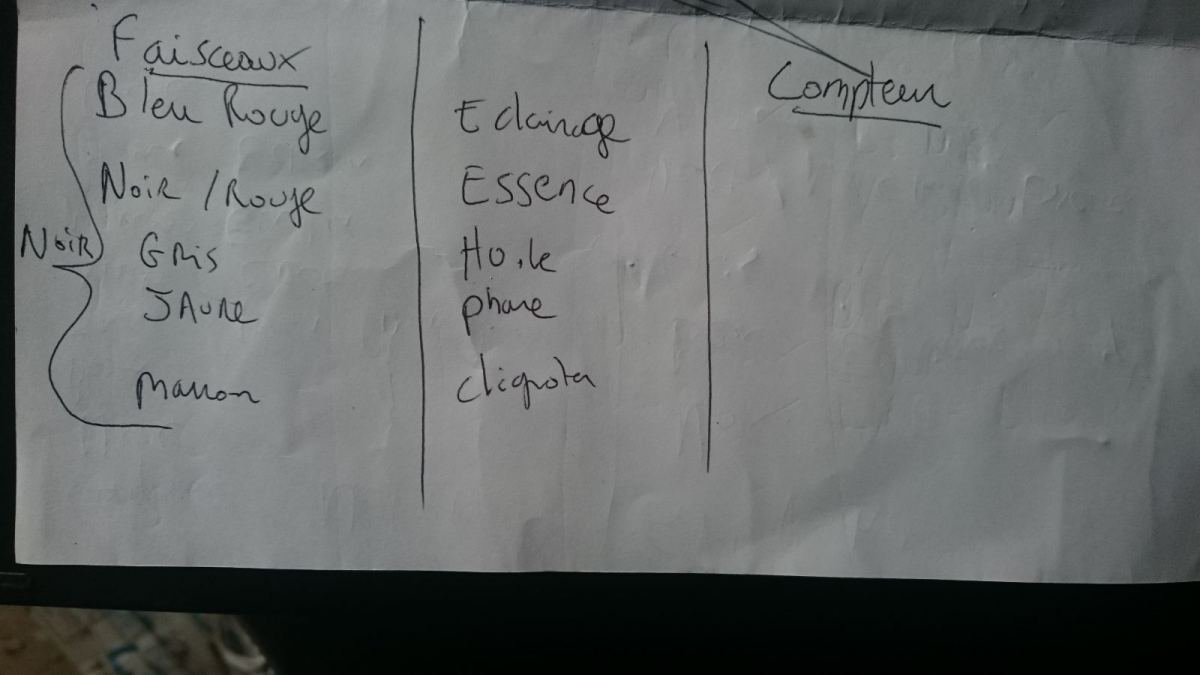 Faisceaux Compteur
Bleu Rouge Eclairage
Noir / Rouge Essence
Noir Gris Huile
JAUNE phare
marron clignotan